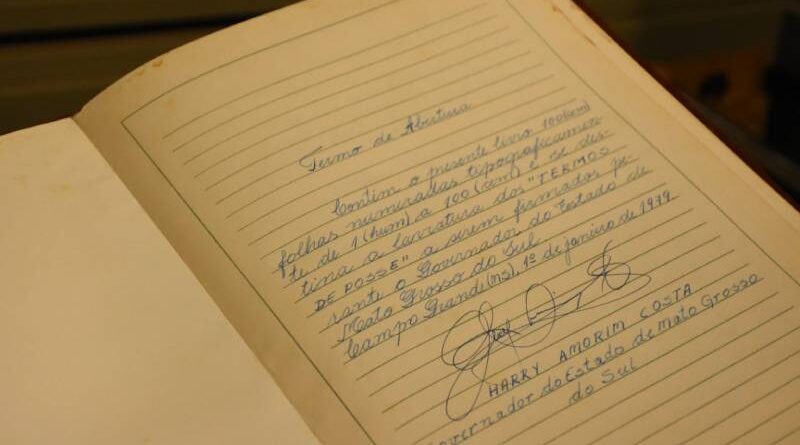 Termo de Abertura
Contém o presente livro 100 (cem)
folhas numeradas tipograficamen
te de 1 (hum) a 100 (cem) e se des-
tina a lavratura dos "TERMOS
DE POSSE" a serem firmados pe-
rante o Governador do Estado de
Mato Grosso do Sul.
Campo Grande (MS), 1º de janeiro de 1979
HARRY AMORIM COSTA
Governador do Estado de Mato Grosso
do Sul